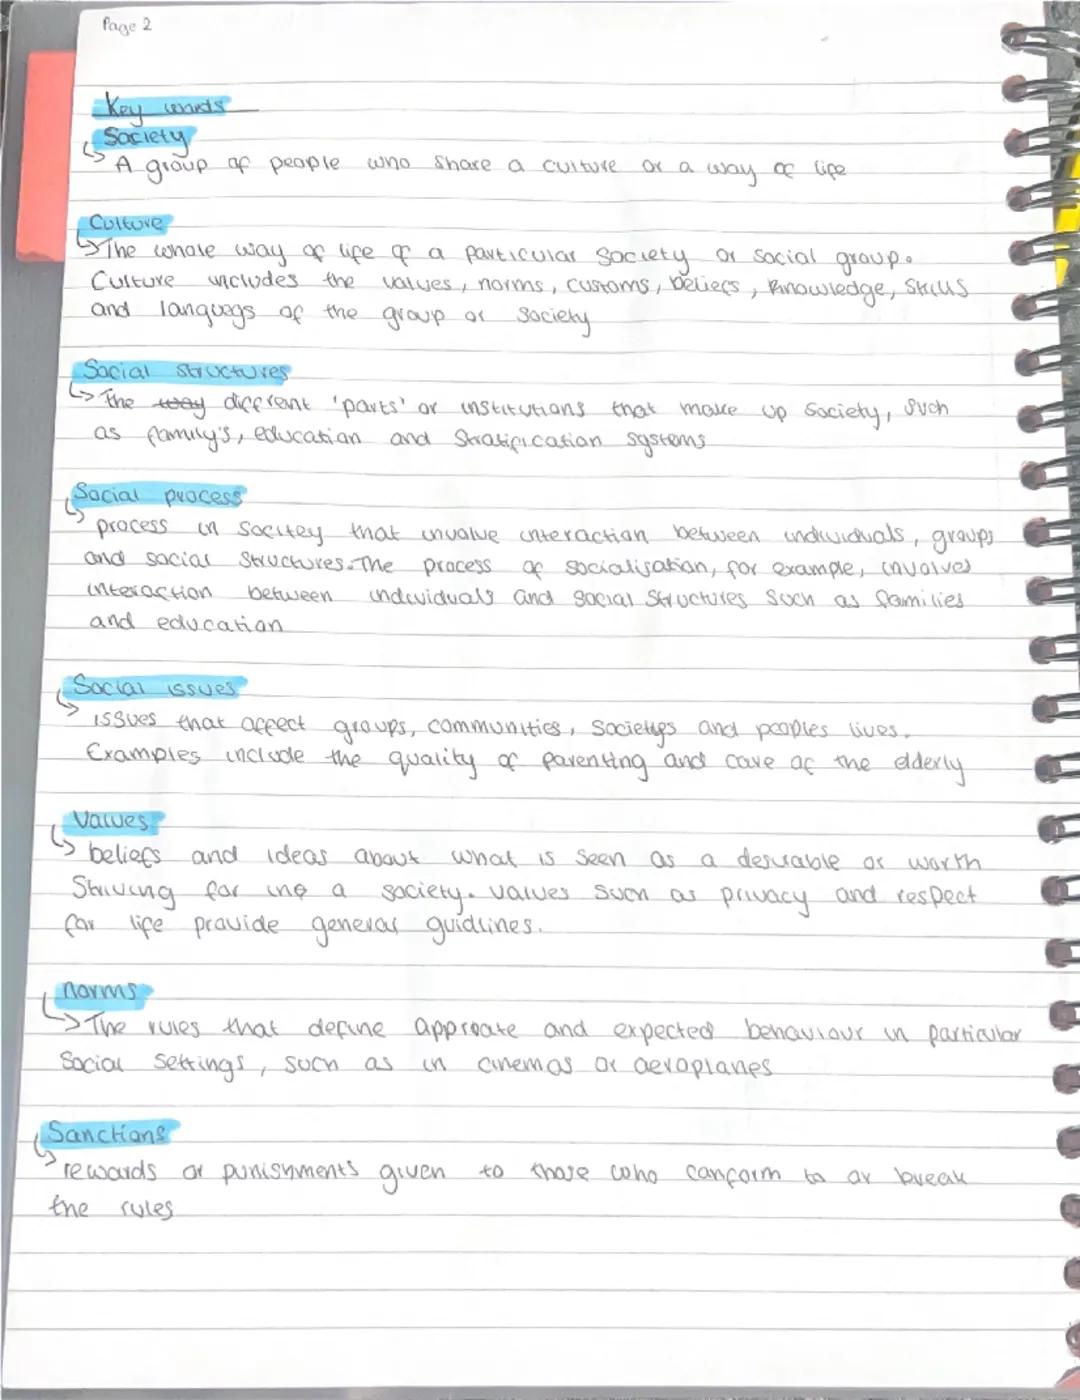 Page 2
Key words
Society
↳ A group of people who share a culture or a way of life
Culture
↳ The whole way of life of a particular society or social group.
Culture includes the values, norms, customs, beliefs, knowledge, skills
and languegs of the group or society
Social structures
↳ The way diffrent 'parts' or institutions that make up society, such
as family's, education and Stratification systems
Social process
↳ process in socitey that involve interaction between individuals, groups
and social structures. The process of socialisation, for example, involves
interaction between individuals and social structures such as families
and education
Social issues
↳ issues that affect groups, communities, societys and peoples lives.
Examples include the quality of parenting and care of the elderly
Values
↳ beliefs and ideas about what is seen as a desirable or worth
Striving for in a society. values such as privacy and respect
for life provide general guidlines.
norms
↳ The rules that define approate and expected behaviour in particular
Social settings, such as in cinemas or aeroplanes
Sanctions
↳ rewards or punishments given to those who conform to or break
the rules